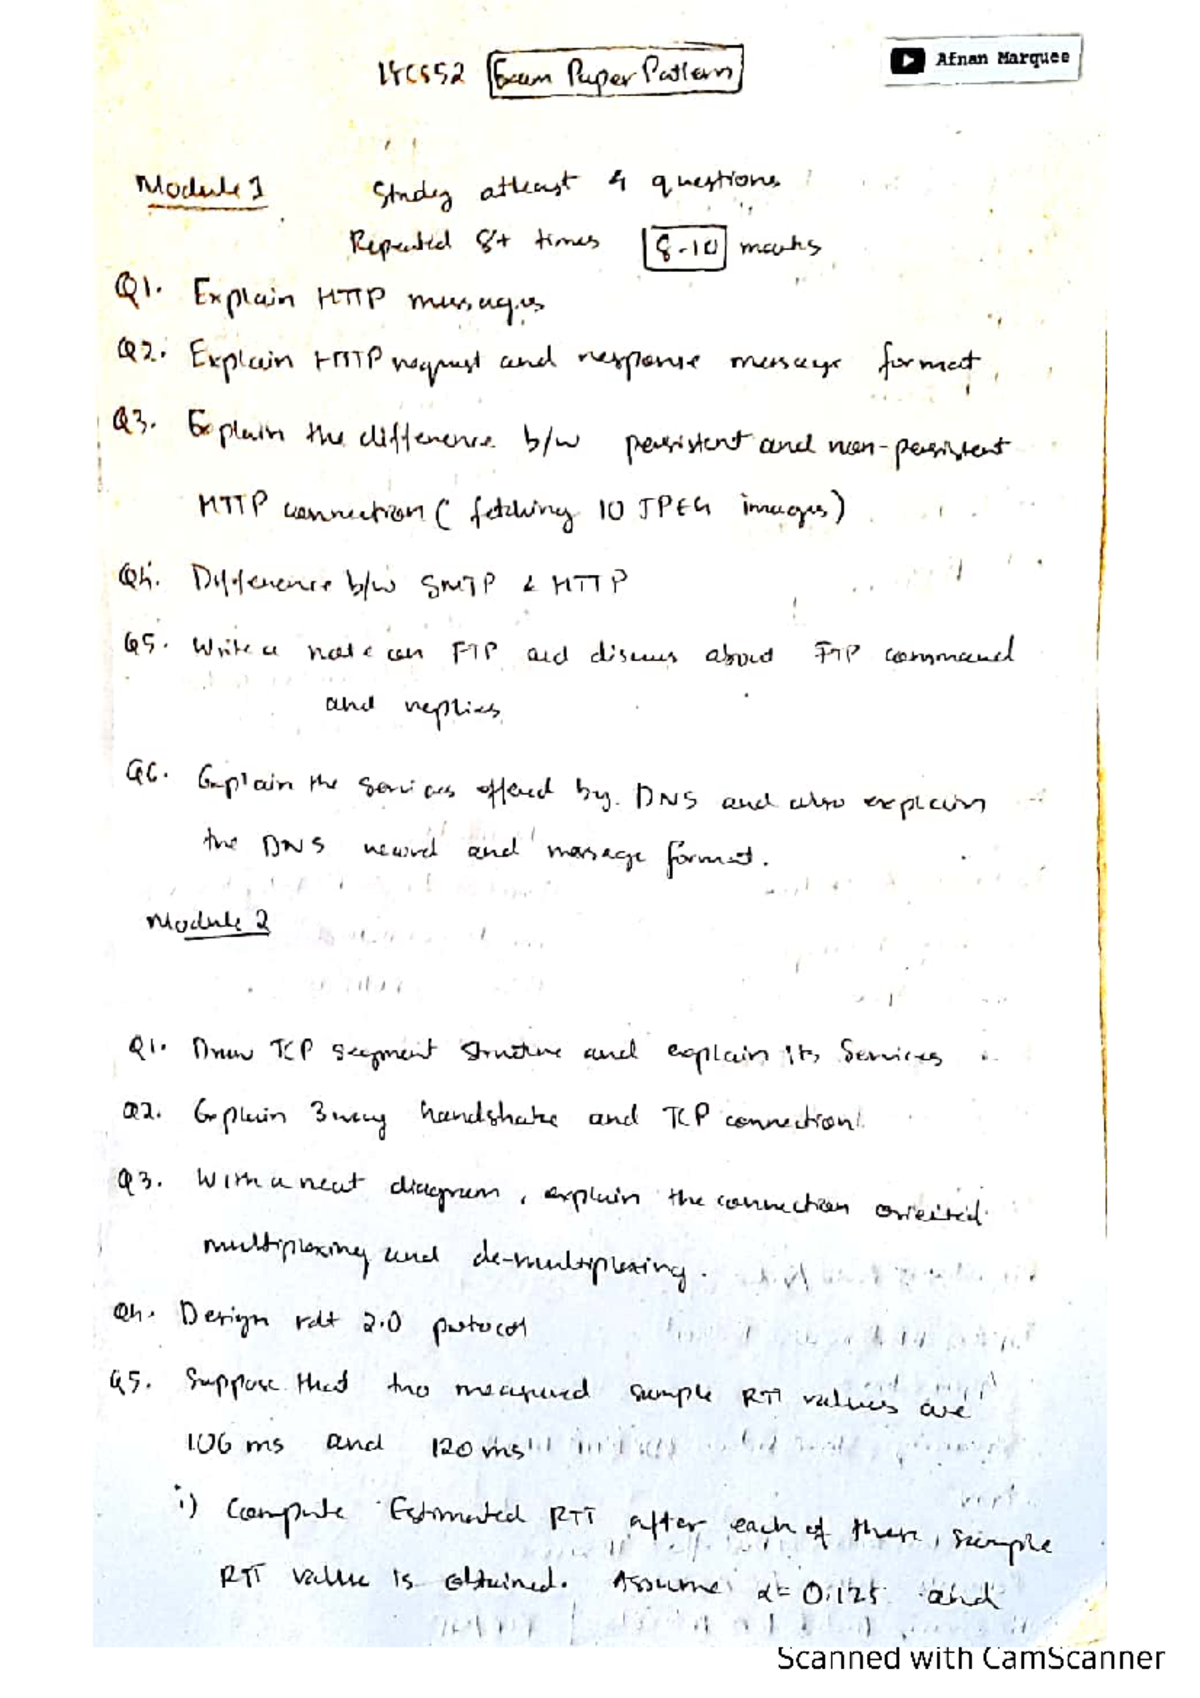 18CS52 Exam Paper Pattern
Afnan Marquee
Module 1 Study atleast 4 questions
Repeated 8+ times 8-10 marks
Q1. Explain HTTP messages
Q2. Explain HTTP request and response message format
Q3. Explain the difference b/w persistent and non-persistent
HTTP connection ( fetching 10 JPEG images)
Q4. Difference b/w SMTP & HTTP
Q5. Write a note on FTP and discuss about FTP command
and replies
Q6. Explain the services offered by DNS and also explain
the DNS record and message format.
Module 2
Q1. Draw TCP segment structure and explain its services
Q2. Explain 3 way handshake and TCP connection
Q3. With a neat diagram, explain the connection oriented
multiplexing and de-multiplexing.
Q4. Design rdt 2.0 protocol
Q5. Suppose that two measured sample RTT values are
106 ms and 120 ms
i) Compute Estimated RTT after each of these sample
RTT value is obtained. Assume α = 0.125 and
Scanned with CamScanner